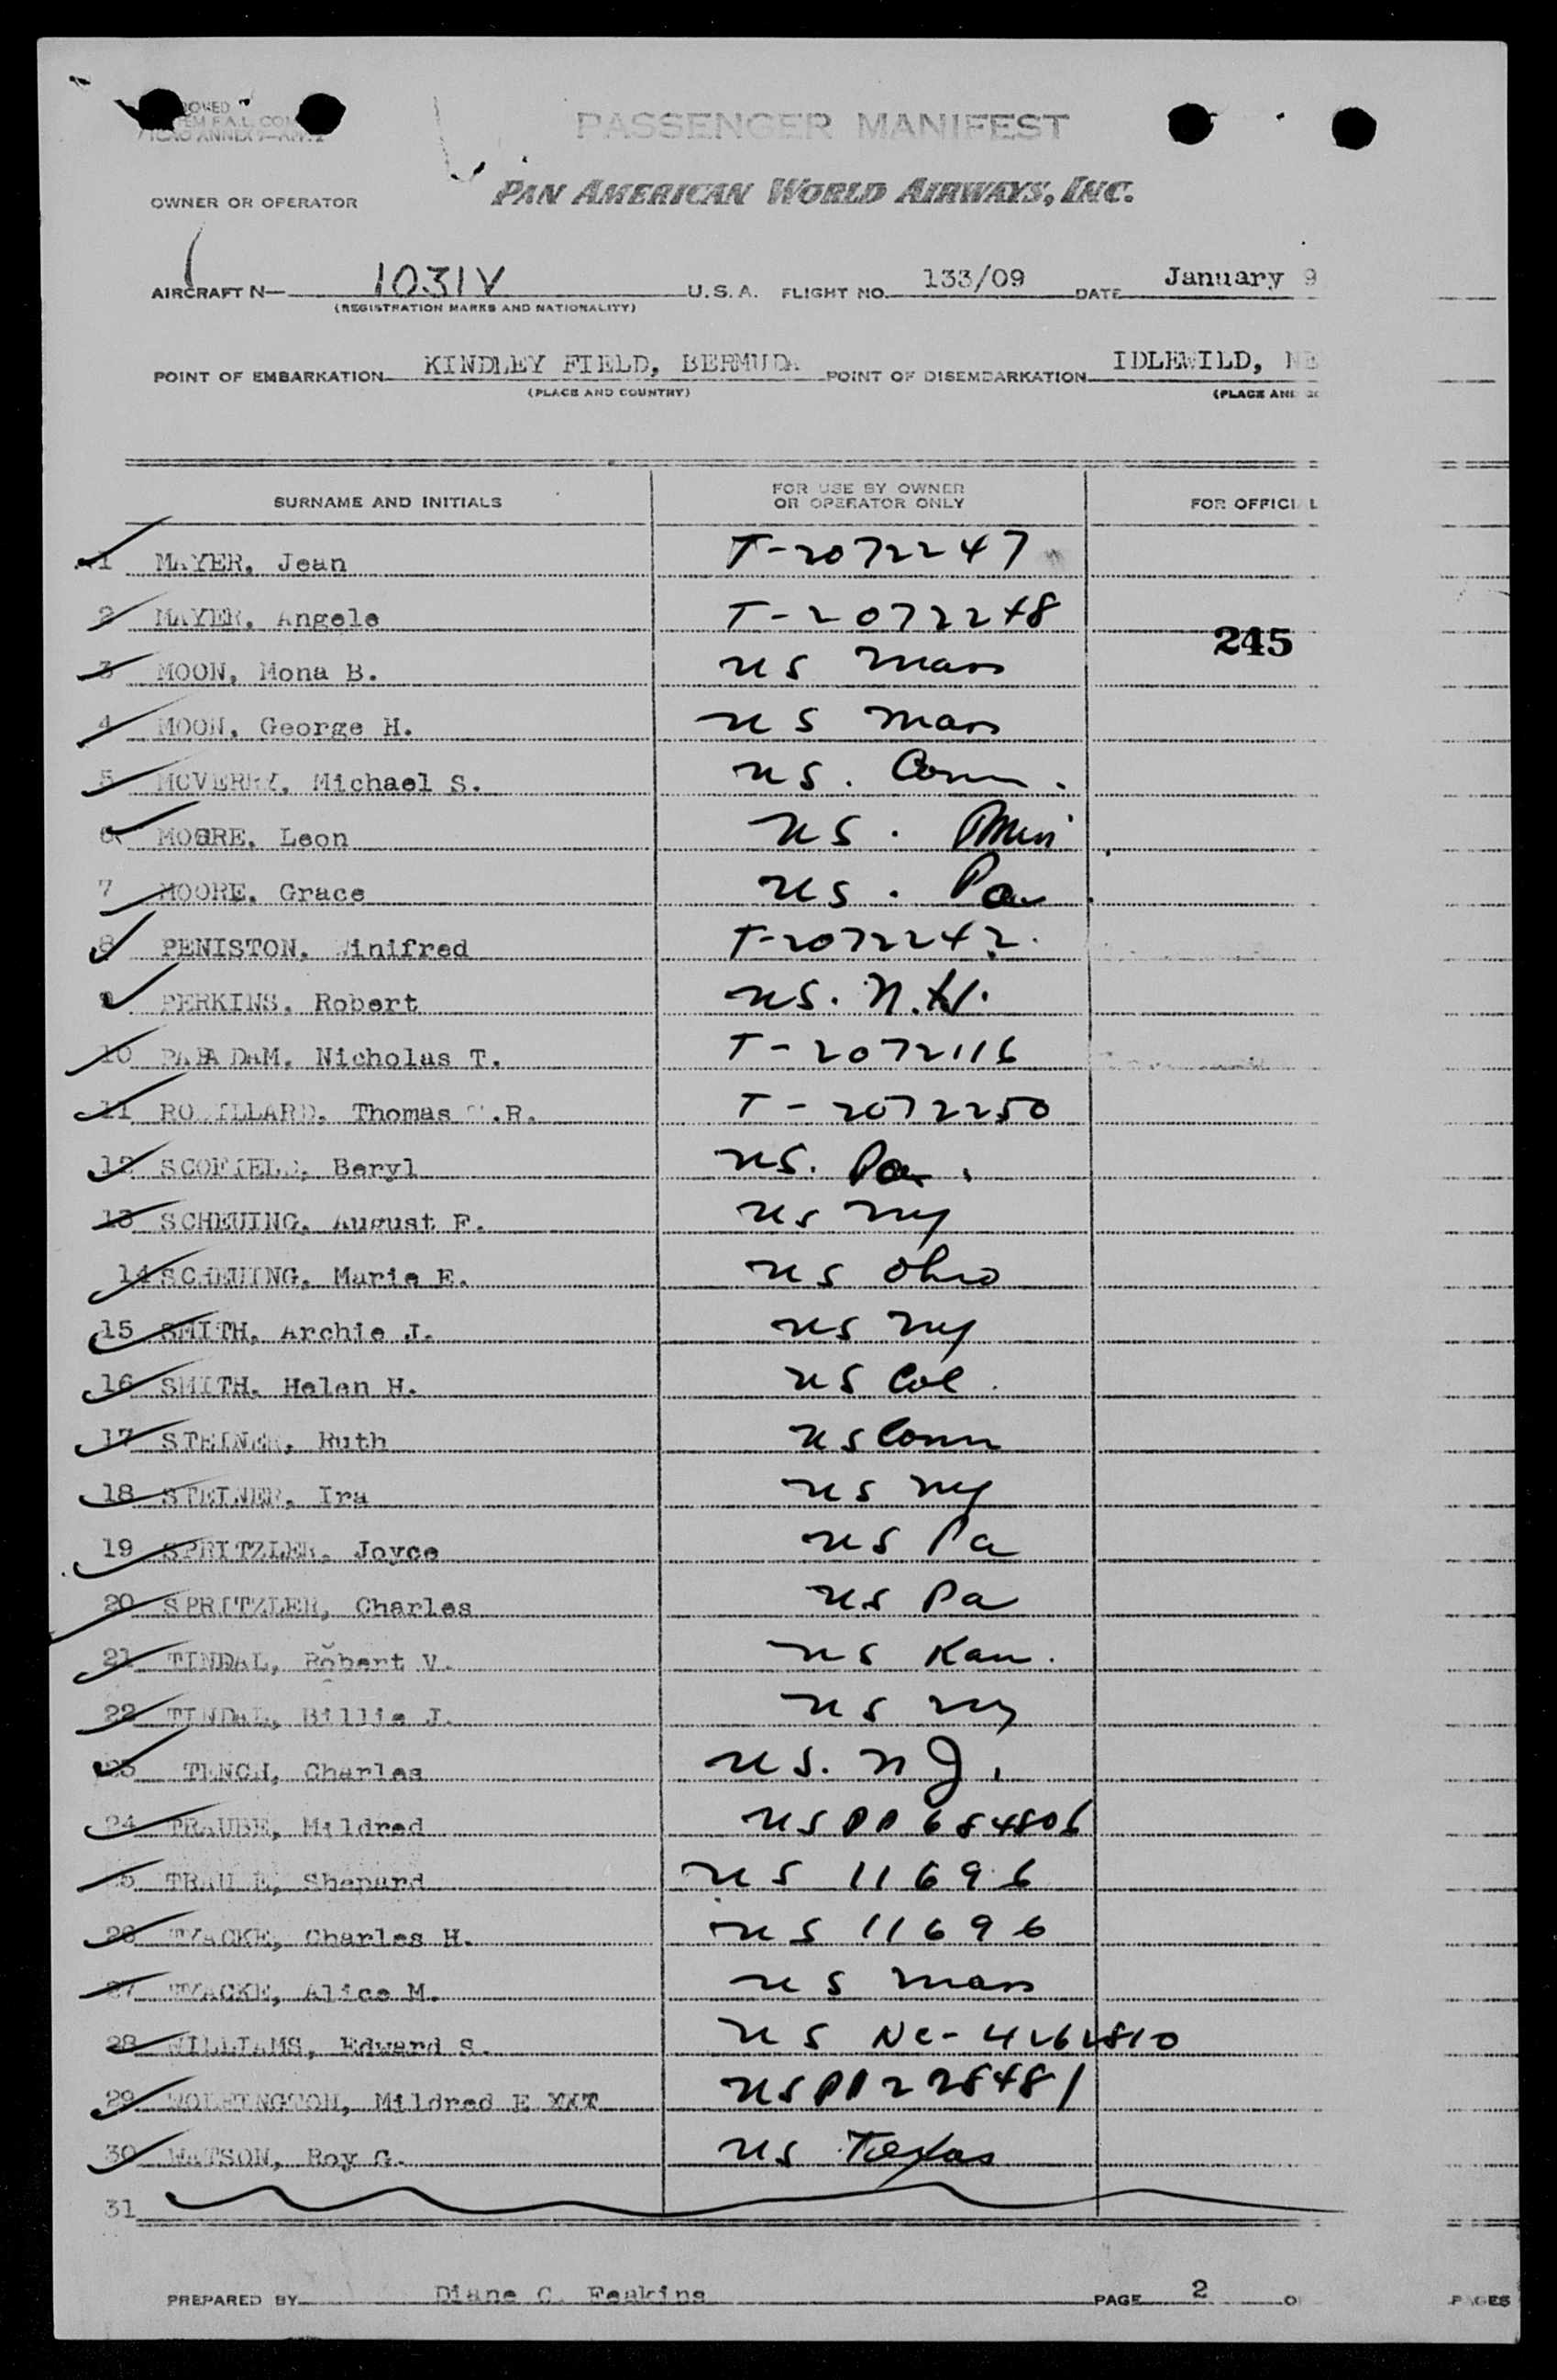 PASSENGER MANIFEST
OWNER OR OPERATOR PAN AMERICAN WORLD AIRWAYS, INC.
AIRCRAFT N— 1031V U.S.A. FLIGHT NO. 133/09 DATE January 9
(REGISTRATION MARKS AND NATIONALITY)
POINT OF EMBARKATION KINDLEY FIELD, BERMUDA POINT OF DISEMBARKATION IDLEWILD, NE
(PLACE AND COUNTRY) (PLACE AND
SURNAME AND INITIALS FOR USE BY OWNER OR OPERATOR ONLY FOR OFFICI L
1 MAYER, Jean T-2072247
2 MAYER, Angele T-2072248
245
3 MOON, Mona B. US Mass
4 MOON, George H. US Mass
5 MCVERRY, Michael S. US. Conn.
6 MOORE, Leon US.
7 MOORE, Grace US. Pa
8 PENISTON, Winifred T-2072242.
9 PERKINS, Robert US. N.H.
10 PAPADAM, Nicholas T. T-2072116
11 Thomas .R. T-2072250
12 SCOFIELD, Beryl US. Pa.
13 SCHEUING, August F. US NY
14 SCHEUING, Marie E. US Ohio
15 SMITH, Archie J. US NY
16 SMITH, Helen H. US Col.
17 STEINER, Ruth US Conn
18 STEINER, Ira US NY
19 SPRITZLER, Joyce US Pa
20 SPRITZLER, Charles US Pa
21 TINDAL, Robert V. US Kan.
22 TINDAL, Billie J. US NY
23 TENCH, Charles US. NJ.
24 TRAUBE, Mildred US PP 684806
25 TRAUBE, Shepard US 11696
26 TYACKE, Charles H. US 11696
27 TYACKE, Alice M. US Mass
28 WILLIAMS, Edward S. US NC-4262810
29 WOLFINGTON, Mildred E XXT US PP 228481
30 WATSON, Roy G. US Texas
31
PREPARED BY Diane C. Feakins PAGE 2 O PAGES